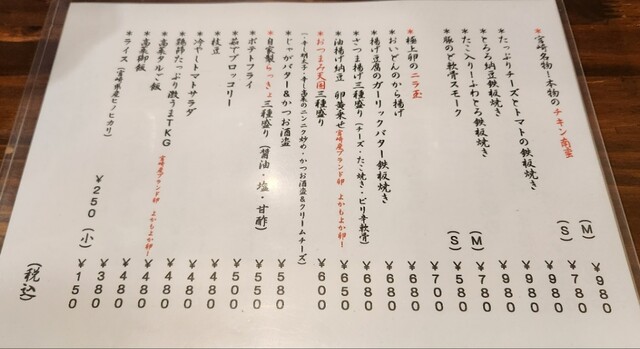 *宮崎名物!本物のチキン南蛮 (M) ¥980
(S) ¥780
*たっぷりチーズとトマトの鉄板焼き ¥980
*とろろ納豆鉄板焼き ¥980
*たこ入り!ふわとろ鉄板焼き (M) ¥780
(S) ¥580
*豚のど軟骨スモーク ¥700
*極上卵のニラ玉 ¥680
*おいどんのから揚げ ¥680
*揚げ豆腐のガーリックバター鉄板焼き ¥680
*さつま揚げ三種盛り(チーズ・たこ焼き・ピリ辛軟骨) ¥680
*油揚げ納豆 卵黄乗せ 宮崎産ブランド卵 よかもよか卵ー ¥650
*おつまみ天国三種盛り ¥600
(・辛し明太子・辛し高菜のニンニク炒め・かつお酒盗&クリームチーズ)
*じゃがバター&かつお酒盗 ¥580
*自家製らっきょ三種盛り(醤油・塩・甘酢) ¥550
*ポテトフライ ¥550
*茹でブロッコリー ¥500
*枝豆 ¥480
*冷やしトマトサラダ ¥480
*鶏節たっぷり激うまTKG 宮崎産ブランド卵 よかもよか卵ー ¥480
*高菜タルご飯 ¥480
*高菜御飯 ¥380
*ライス(宮崎県産ヒノヒカリ) ¥250 (小) ¥150
(税込)